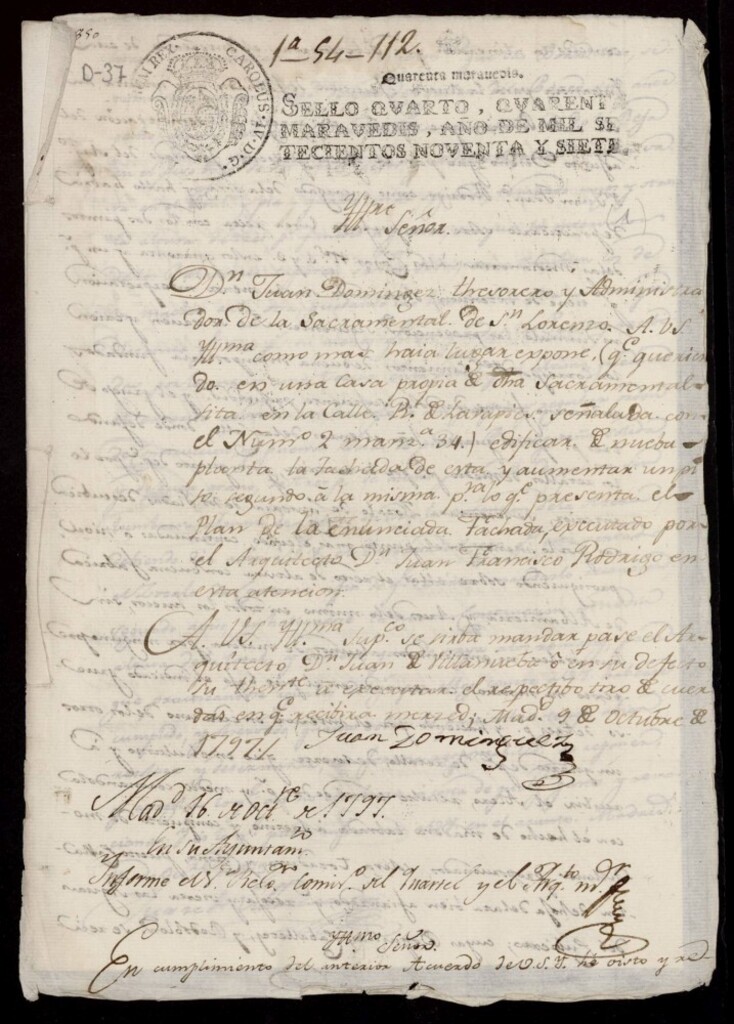 D-37
1ª 54-112.
CAROLUS IV D.G.
Quarenta maravedis.
SELLO QVARTO, QVARENT
MARAVEDIS, AÑO DE MIL SE
TECIENTOS NOVENTA Y SIETE.
Yllre
Señor.
Dn Juan Dominguez thesorero y Administra
dor de la Sacramental de Sn Lorenzo A. VS
Yllma como mas haia lugar expone, (qe querien
do en una Casa propia de dha Sacramental
sita en la Calle Rl de Lavapies señalada con
el Numo 2 manza 34.) edificar de nueba
planta la fachada de esta, y aumentar un pi
so segundo â la misma pra lo qe presenta el
Plan de la enunciada fachada, executado por
el Arquitecto Dn Juan Francisco Rodrigo en
esta atencion.
A. VS. Yllma Supco se sirba mandar pase el Ar
quitecto Dn Juan de Villanueba ô en su defecto
su theniente a executar el respectibo tiro de cuer
das en qe recibira merzed; Madd 9 de Octubre de
1797.
Juan Dominguez
Madd 16 de Octre de 1797.
En su Ayuntamto
Informe el Sr Comiso del Quartel y el Arqto mr
Yllmo Señor.
En cumplimiento del anterior Acuerdo de V.S.Y. he visto y re